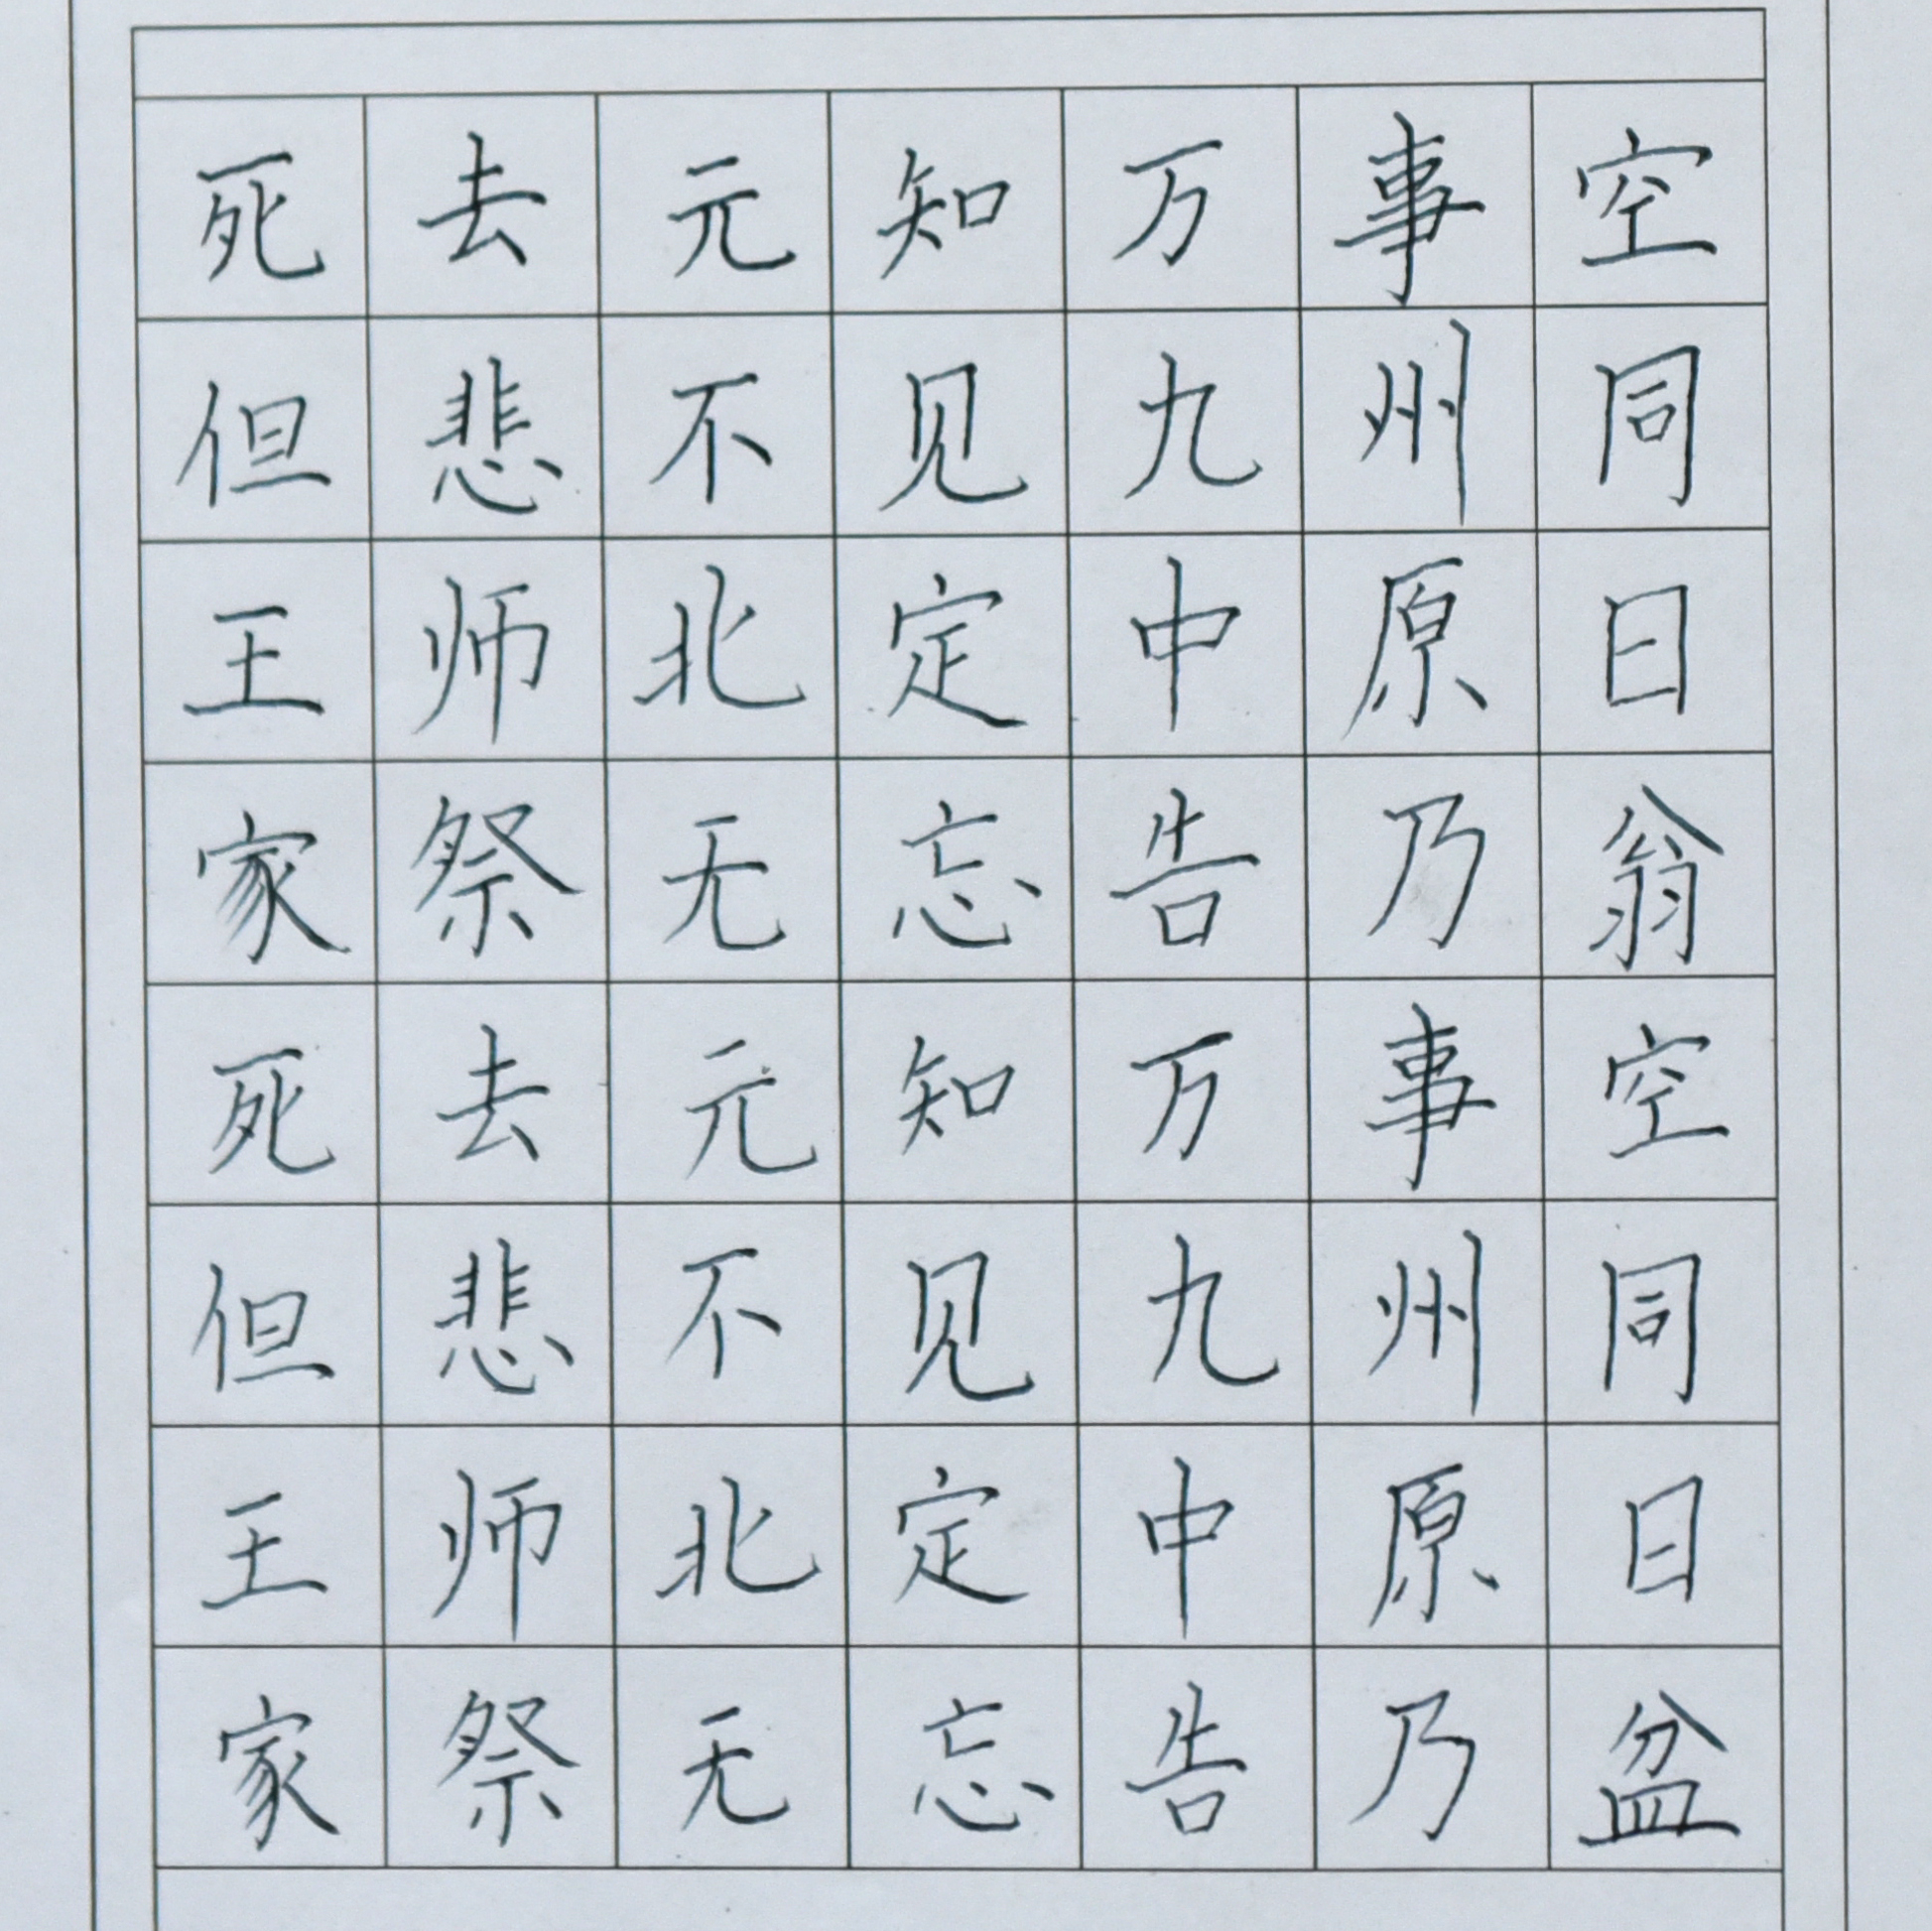 死去元知万事空
但悲不见九州同
王师北定中原日
家祭无忘告乃翁
死去元知万事空
但悲不见九州同
王师北定中原日
家祭无忘告乃盆